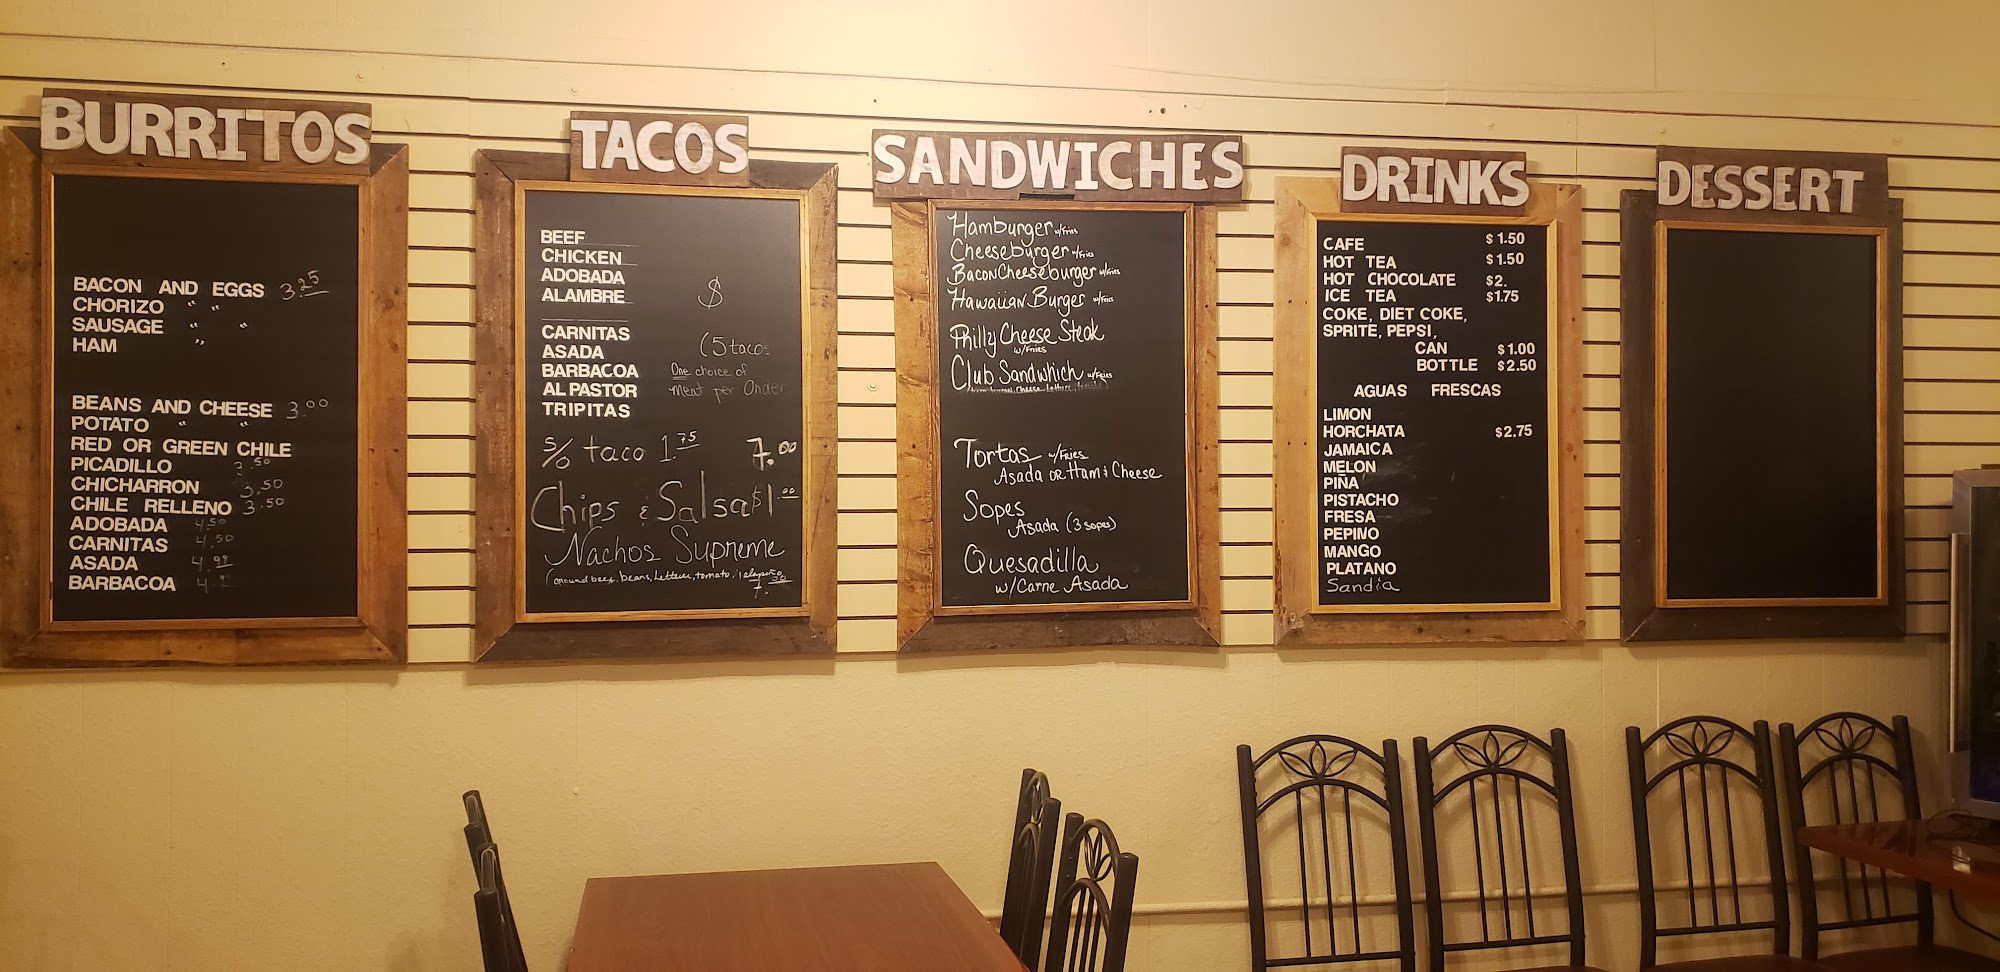 BURRITOS
BACON AND EGGS 3.25
CHORIZO " "
SAUSAGE " "
HAM "
BEANS AND CHEESE 3.00
POTATO " "
RED OR GREEN CHILE
PICADILLO 3.50
CHICHARRON 3.50
CHILE RELLENO 3.50
ADOBADA 4.50
CARNITAS 4.50
ASADA 4.99
BARBACOA
TACOS
BEEF
CHICKEN
ADOBADA
ALAMBRE $
CARNITAS
ASADA (5 tacos
BARBACOA One choice of
AL PASTOR meat per Order
TRIPITAS
s/o taco 1.75 7.00
Chips & Salsa $1.00
Nachos Supreme
(Ground beef, beans, Lettuce, tomato, Jalapeño
SANDWICHES
Hamburger w/Fries
Cheeseburger w/Fries
Bacon Cheeseburger w/Fries
Hawaiian Burger w/Fries
Philly Cheese Steak
w/Fries
Club Sandwhich w/Fries
Tortas w/Fries
Asada or Ham & Cheese
Sopes
Asada (3 sopes)
Quesadilla
w/Carne Asada
DRINKS
CAFE $1.50
HOT TEA $1.50
HOT CHOCOLATE $2.
ICE TEA $1.75
COKE, DIET COKE,
SPRITE, PEPSI,
CAN $1.00
BOTTLE $2.50
AGUAS FRESCAS
LIMON
HORCHATA $2.75
JAMAICA
MELON
PIÑA
PISTACHO
FRESA
PEPINO
MANGO
PLATANO
Sandia
DESSERT